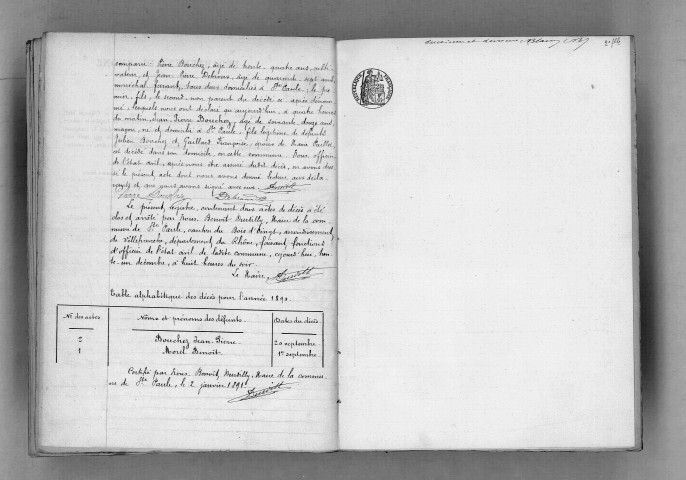 comparu : Pierre Bouchez, âgé de trente-quatre ans, culti-
vateur et Jean Pierre Debienne, âgé de quarante sept ans,
maréchal ferrant, tous deux domiciliés à Ste Paule, le pre-
mier, fils, le second, non parent du décédé ci après dénom-
mé, lesquels nous ont déclaré qu'aujourd'hui, à quatre heures
du matin, Jean Pierre Bouchez, âgé de soixante douze ans,
maçon, né et domicilié à Ste Paule, fils légitime de défunts
Julien Bouchez et Guillard Françoise, époux de Marie
est décédé dans son domicile, en cette commune. Nous officier
de l'état civil, après nous être assuré dudit décès, en avons dres-
sé le présent acte dont nous avons donné lecture aux décla-
rants et que nous avons signé avec eux.
Pierre Bouchez
Le présent registre contenant deux actes de décès a été
clos et arrêté par nous, Benoît Nertilly, Maire de la com-
mune de Ste Paule, canton du Bois d'Oingt, arrondissement
de Villefranche, département du Rhône, faisant fonctions
d'officier de l'état civil de ladite commune, cejourd'hui, tren-
te-un décembre, à huit heures du soir.
Le Maire,
Table alphabétique des décès pour l'année 1890.
Nos des actes Noms et prénoms des défunts Dates du décès
2 Bouchez Jean Pierre 20 septembre
1 Morel Benoît 1er septembre
Certifié par nous, Benoît Nertilly, Maire de la commu-
ne de Ste Paule, le 2 janvier 1891.